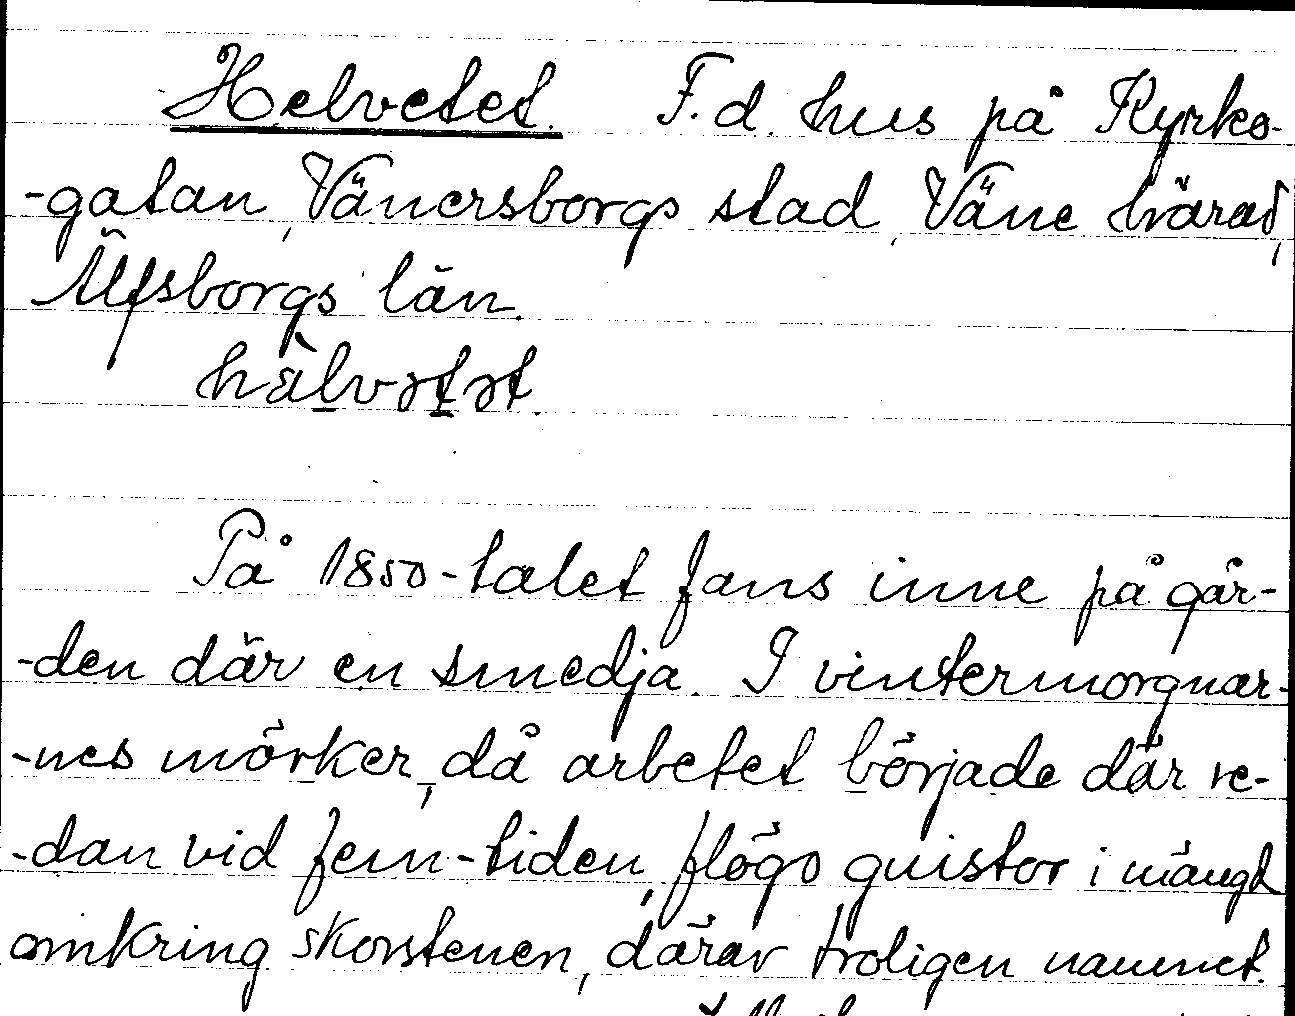 Helvetet. F.d. hus på Kyrko-
-gatan, Vänersborgs stad, Väne härad,
Älfsborgs län.
hälvətət.
På 1850-talet fans inne på går-
-den där en smedja. I vintermorgnar-
-nes mörker, då arbetet började där re-
-dan vid fem-tiden, flögo gnistor i mängd
omkring skorstenen, därav troligen namnet.